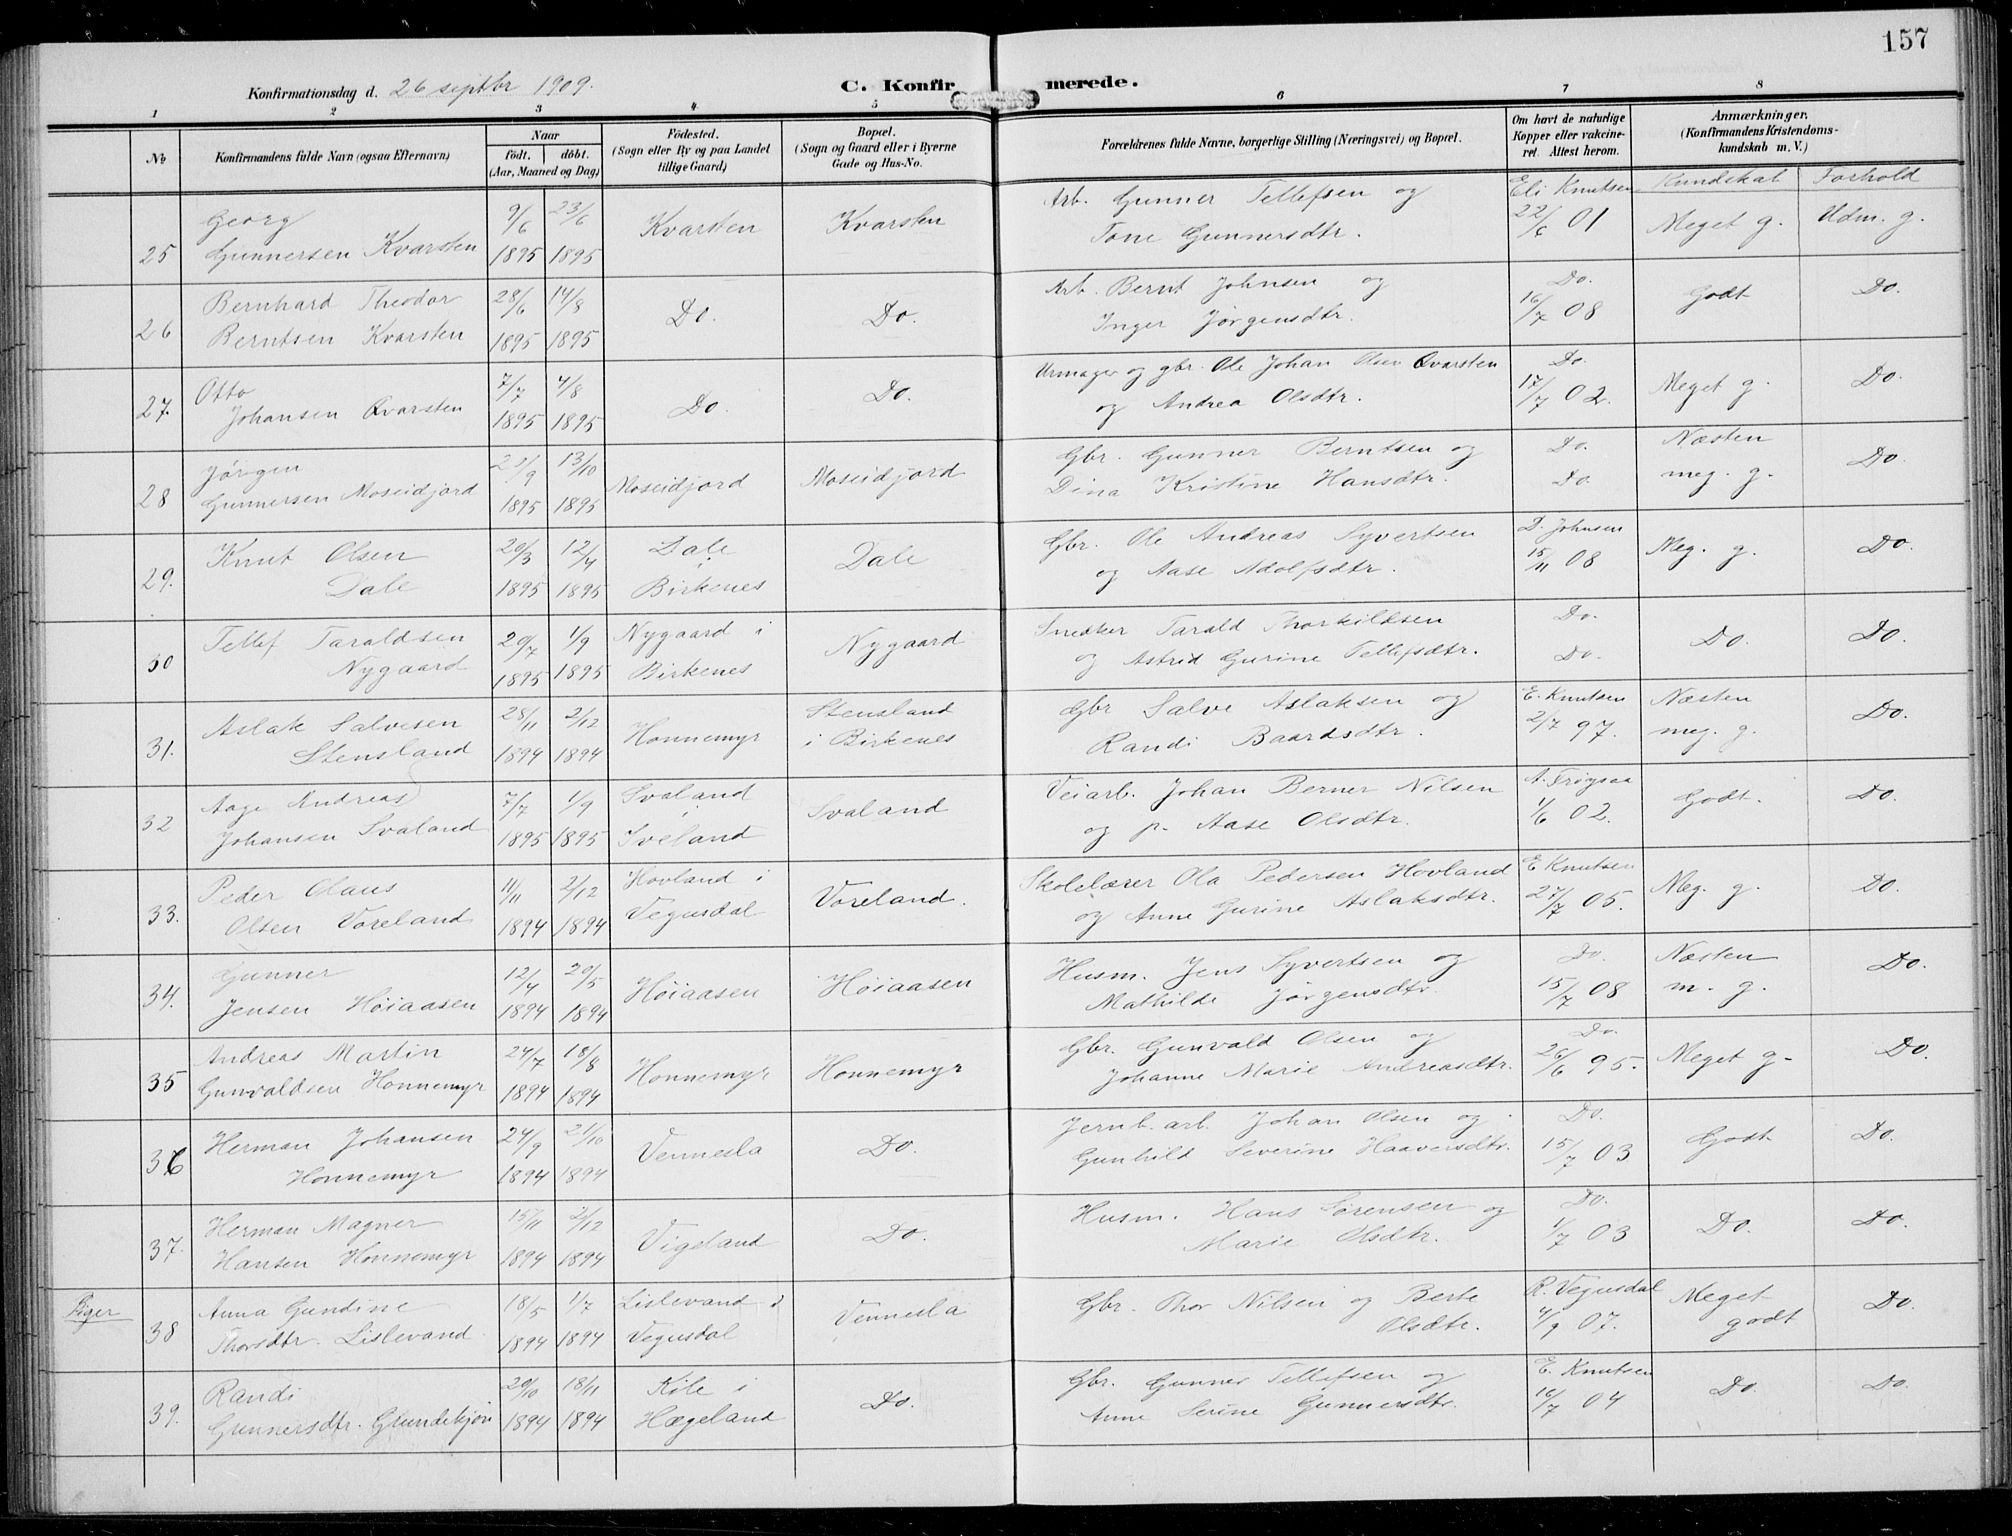 157
Konfirmationsdag d. 26 septbr 1909.
C. Konfirmerede.
1 2 3 4 5 6 7 8
No
Konfirmandens fulde Navn (ogsaa Efternavn)
Naar
født. døbt.
(Aar, Maaned og Dag)
Födested.
(Sogn eller By og paa Landet
tillige Gaard)
Bopæl.
(Sogn og Gaard eller i Byerne
Gade og Hus-No.
Forældrenes fulde Navne, borgerlige Stilling (Næringsvei) og Bopæl.
Om havt de naturlige
Kopper eller vakcine-
ret. Attest herom.
Anmærkninger.
(Konfirmandens Kristendoms-
kundskab m. V.)
Kundskab Forhold
Georg 9/6 23/6 Kvarsten Kvarsten Arb. Gunner Tellefsen og Eli Knutsen
25 Gunnersen Kvarsten 1895 1895 Tone Gunnersdtr. 22/6 01 Meget g. Udm. g.
Bernhard Theodor 28/6 14/8 Do. Do. Arb. Bernt Johnsen og Do. Godt Do.
26 Berntsen Kvarsten 1895 1895 Inger Jørgensdtr. 16/7 08
Otto 7/7 4/8 Do. Do. Urmager og gbr. Ole Johan Olsen Qvarsten Do.
27. Johansen Qvarsten 1895 1895 og Andrea Olsdtr. 17/7 02. Meget g. Do.
Jørgen 13/10 Moseidjord Moseidjord Gbr. Gunner Berntsen og Do. Næsten Do.
28 Gunnersen Moseidjord 1895 1895 Dina Kristine Hansdtr. Do. meg. g.
Knut Olsen 20/3 12/4 Dale Dale Gbr. Ole Andreas Syvertsen D. Johnsen Meg. g. Do.
29. Dale 1895 1895 Birkenes og Aase Adolfsdtr. 15/11 08
Tellef Taraldsen 20/7 1/9 Nygaard i Nygaard Snedker Tarald Thorkildsen Do. Do. Do.
30 Nygaard 1895 1895 Birkenes og Astrid Gurine Tellefsdtr. Do.
Aslak Salvesen 28/11 2/12 Honnemyr Stensland Gbr Salve Aslaksen og E. Knutsen Næsten Do.
31. Stensland 1894 1894 i Birkenes Randi Baardsdtr. 2/7 97. meg. g.
Aage Andreas 7/7 1/9 Svaland Svaland Veiarb. Johan Berner Nilsen Godt. Do.
32 Johansen Svaland 1895 1895 Sveland og p. Aase Olsdtr. 1/6 02.
Peder Olaus 11/11 2/12 Hovland i Voreland. Skolelærer Ola Pedersen Hovland E Knutsen Meg. g. Do.
33. Olsen Voreland 1894 1894 Vegusdal og Anne Gurine Aslaksdtr. 27/7 05.
Gunner 12/4 20/5 Høiaasen Høiaasen Husm. Jens Syvertsen og Do. Næsten Do.
34. Jensen Høiaasen 1894 1894 Mathilde Jørgensdtr. 15/7 08 m. g.
Andreas Martin 24/7 18/8 Honnemyr Honnemyr Gbr. Gunvald Olsen og Do. Meget g. Do.
35 Gunvaldsen Honnemyr 1894 1894 Johanne Marie Andreasdtr. 26/6 95.
Herman Johansen 24/9 21/10 Vennesla Do. Jernb. arb. Johan Olsen og Do. Godt Do.
36 Honnemyr 1894 1894 Gunhild Severine Haaversdtr. 15/7 03
Herman Magner 15/11 2/12 Vigeland Do. Husm. Hans Sørensen og Do. Do. Do.
37. Hansen Honnemyr 1894 1894 Marie Olsdtr. 1/7 03
Piger Anna Gundine 18/5 1/7 Lislevand i Vennesla Gbr. Thor Nilsen og Berte R. Vegusdal Meget Do.
38 Thorsdtr. Lislevand 1894 1894 Vegusdal Olsdtr. 4/9 07. godt
Randi 20/10 18/11 Kile i Do. Gbr. Gunner Tellefsen og E. Knutsen Do. Do.
39. Gunnersdtr. 1894 1894 Hægeland Anne Serine Gunnersdtr. 16/7 04